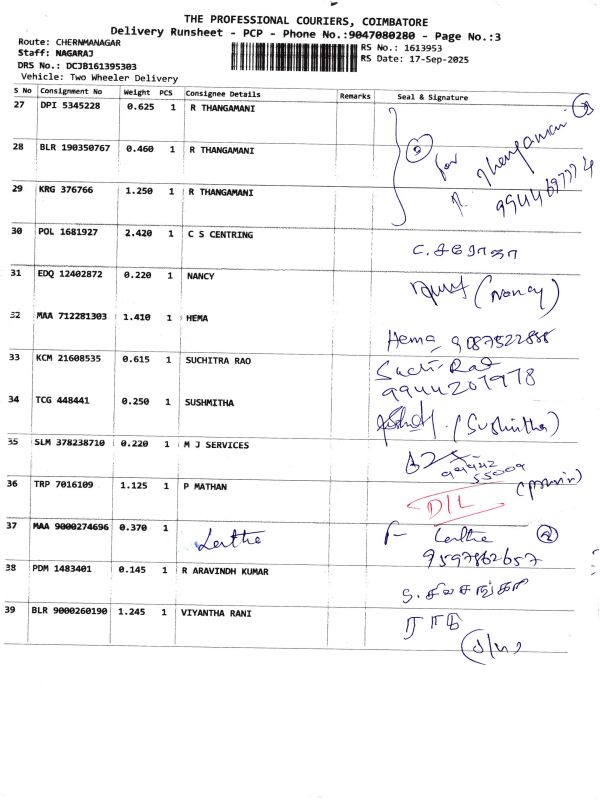 THE PROFESSIONAL COURIERS, COIMBATORE
Delivery Runsheet - PCP - Phone No.:9047080280 - Page No.:3
Route: CHERNMANAGAR
Staff: NAGARAJ
DRS No.: DCJB161395303
Vehicle: Two Wheeler Delivery
RS No.: 1613953
RS Date: 17-Sep-2025
S No Consignment No Weight PCS Consignee Details Remarks Seal & Signature
27 DPI 5345228 0.625 1 R THANGAMANI
28 BLR 190350767 0.460 1 R THANGAMANI
for R. Thangamani
29 KRG 376766 1.250 1 R THANGAMANI
30 POL 1681927 2.420 1 C S CENTRING
C. சரோஜா
31 EDQ 12402872 0.220 1 NANCY
(Nancy)
32 MAA 712281303 1.410 1 HEMA
Hema 9087522888
33 KCM 21608535 0.615 1 SUCHITRA RAO
Suchi Rao
9944207978
34 TCG 448441 0.250 1 SUSHMITHA
(Sushmitha)
35 SLM 378238710 0.220 1 M J SERVICES
99942
55009
36 TRP 7016109 1.125 1 P MATHAN
D/L
37 MAA 9000274696 0.370 1 Lathe
Lathe
9597862657
38 PDM 1483401 0.145 1 R ARAVINDH KUMAR
S. சிவசங்கர்
39 BLR 9000260190 1.245 1 VIYANTHA RANI
ராத